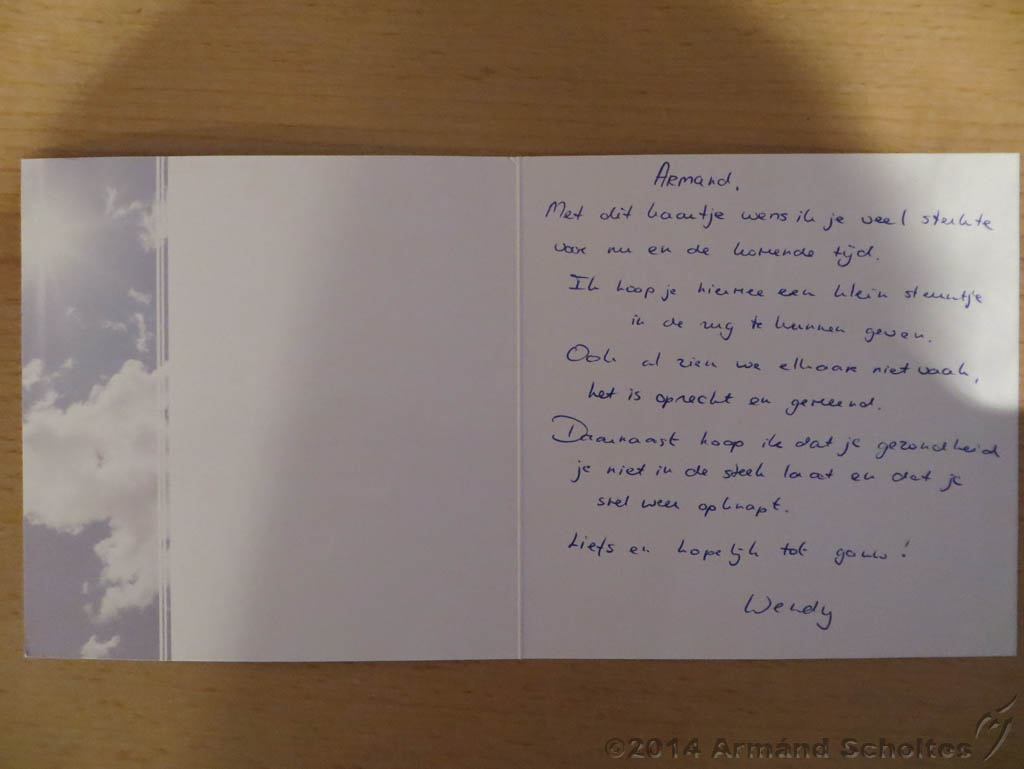 Armand,
Met dit kaartje wens ik je veel sterkte
voor nu en de komende tijd.
Ik hoop je hiermee een klein steuntje
in de rug te kunnen geven.
Ook al zien we elkaar niet vaak,
het is oprecht en gemeend.
Daarnaast hoop ik dat je gezondheid
je niet in de steek laat en dat je
snel weer opknapt.
Liefs en hopelijk tot gauw!
Wendy
©2014 Armánd Scholtes